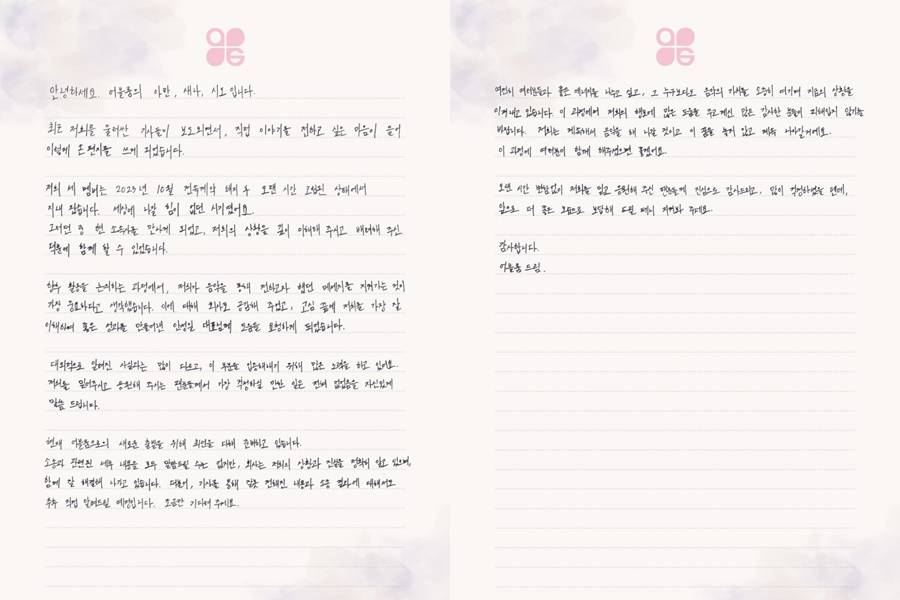 안녕하세요. 어블룸의 아란, 새나, 시오입니다.
최근 저희를 둘러싼 기사들이 보도되면서, 직접 이야기를 전하고 싶은 마음이 들어
이렇게 손편지를 쓰게 되었습니다.
저희 세 멤버는 2023년 10월 전속계약 해지 후 오랜 시간 고립된 상태에서
지내 왔습니다. 세상에 나갈 힘이 없던 시기였어요.
그러던 중 현 소속사를 만나게 되었고, 저희의 상황을 깊이 이해해 주시고 배려해 주신
덕분에 함께 할 수 있었습니다.
향후 활동을 논의하는 과정에서, 저희가 음악을 통해 전하고자 했던 메세지를 지켜가는 것이
가장 중요하다고 생각했습니다. 이에 대해 회사도 공감해 주었고, 고심 끝에 저희를 가장 잘
이해하며 좋은 성과를 만들어낸 안성일 대표님께 도움을 요청하게 되었습니다.
대외적으로 알려진 사실과는 많이 다르고, 이 부분을 입증해내기 위해 많은 노력을 하고 있어요.
저희를 믿어주시고 응원해 주시는 팬분들께서 가장 걱정하실 만한 일은 전혀 없었음을 자신있게
말씀 드립니다.
현재 어블룸으로의 새로운 출발을 위해 최선을 다해 준비하고 있습니다.
소송과 관련된 세부 내용을 모두 말씀드릴 수는 없지만, 회사는 저희의 상황과 진실을 정확히 알고 있으며,
함께 잘 해결해 나가고 있습니다. 더불어, 기사를 통해 잘못 전해진 내용과 소송 결과에 대해서도
추후 직접 알려드릴 예정입니다. 조금만 기다려 주세요.
여전히 여러분들과 좋은 에너지를 나누고 싶고, 그 누구보다도 음악의 가치를 소중히 여기며 지금의 상황을
이겨내고 있습니다. 이 과정에서 저희의 행보에 많은 도움을 주고 계신 많은 감사한 분들이 피해입지 않기를
바랍니다. 저희는 계속해서 음악을 해 나갈 것이고 이 꿈을 놓지 않고 계속 나아갈거예요.
이 과정에 여러분이 함께 해주셨으면 좋겠어요.
오랜 시간 변함없이 저희를 믿고 응원해 주신 팬분들께 진심으로 감사드리고, 많이 걱정하셨을 텐데,
앞으로 더 좋은 모습으로 보답해 드릴 테니 지켜봐 주세요.
감사합니다.
어블룸 드림.